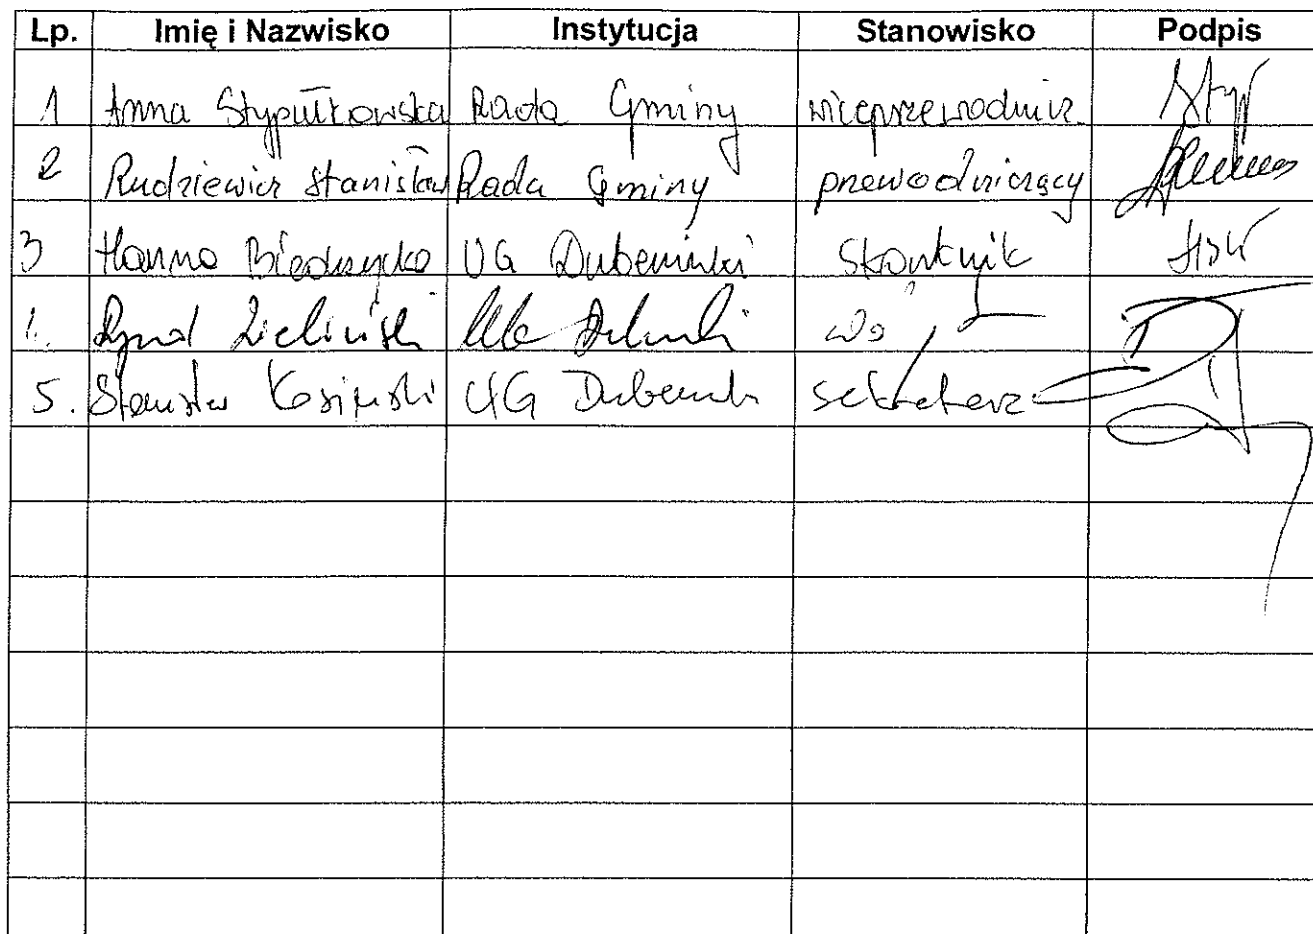 Lp. Imię i Nazwisko Instytucja Stanowisko Podpis
1 Anna Stypułkowska Rada Gminy wiceprzewodnicz.
2 Rudziewicz Stanisław Rada Gminy przewodniczący
3 Hanna UG Dubeninki Skarbnik
Zieliński
5. Stanisław Kosiński UG sekretarz